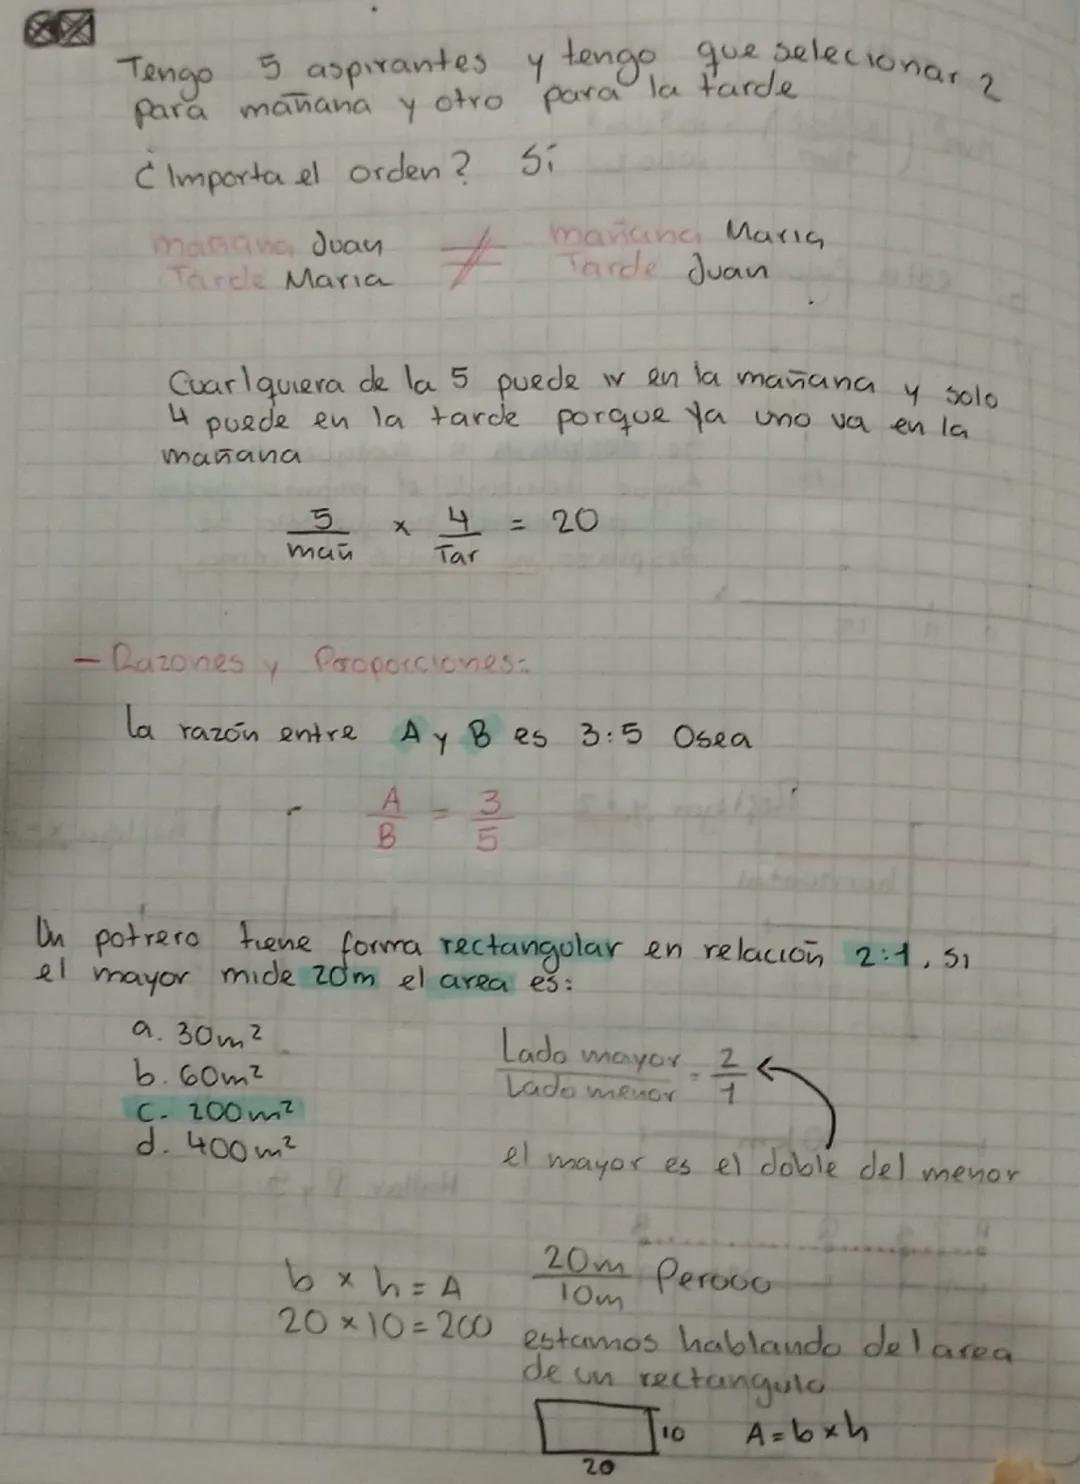 Tengo 5 aspirantes y tengo que selecionar 2
para mañana y otro para la tarde
¿Importa el orden? Sí
mañana Juan ≠ mañana Maria
Tarde Maria Tarde Juan
Cuarlquiera de la 5 puede ir en la mañana y solo
4 puede en la tarde porque ya uno va en la
mañana
5/mañ x 4/Tar = 20
- Razones y Proporciones:
la razón entre A y B es 3:5 Osea
A/B = 3/5
Un potrero tiene forma rectangular en relación 2:1, si
el mayor mide 20m el area es:
a. 30m²
b. 60m²
c. 200m²
d. 400m²
Lado mayor/Lado menor = 2/1
el mayor es el doble del menor
b x h = A
20 x 10 = 200
20m/10m Perooo
estamos hablando del area
de un rectangulo
10 A = b x h
20